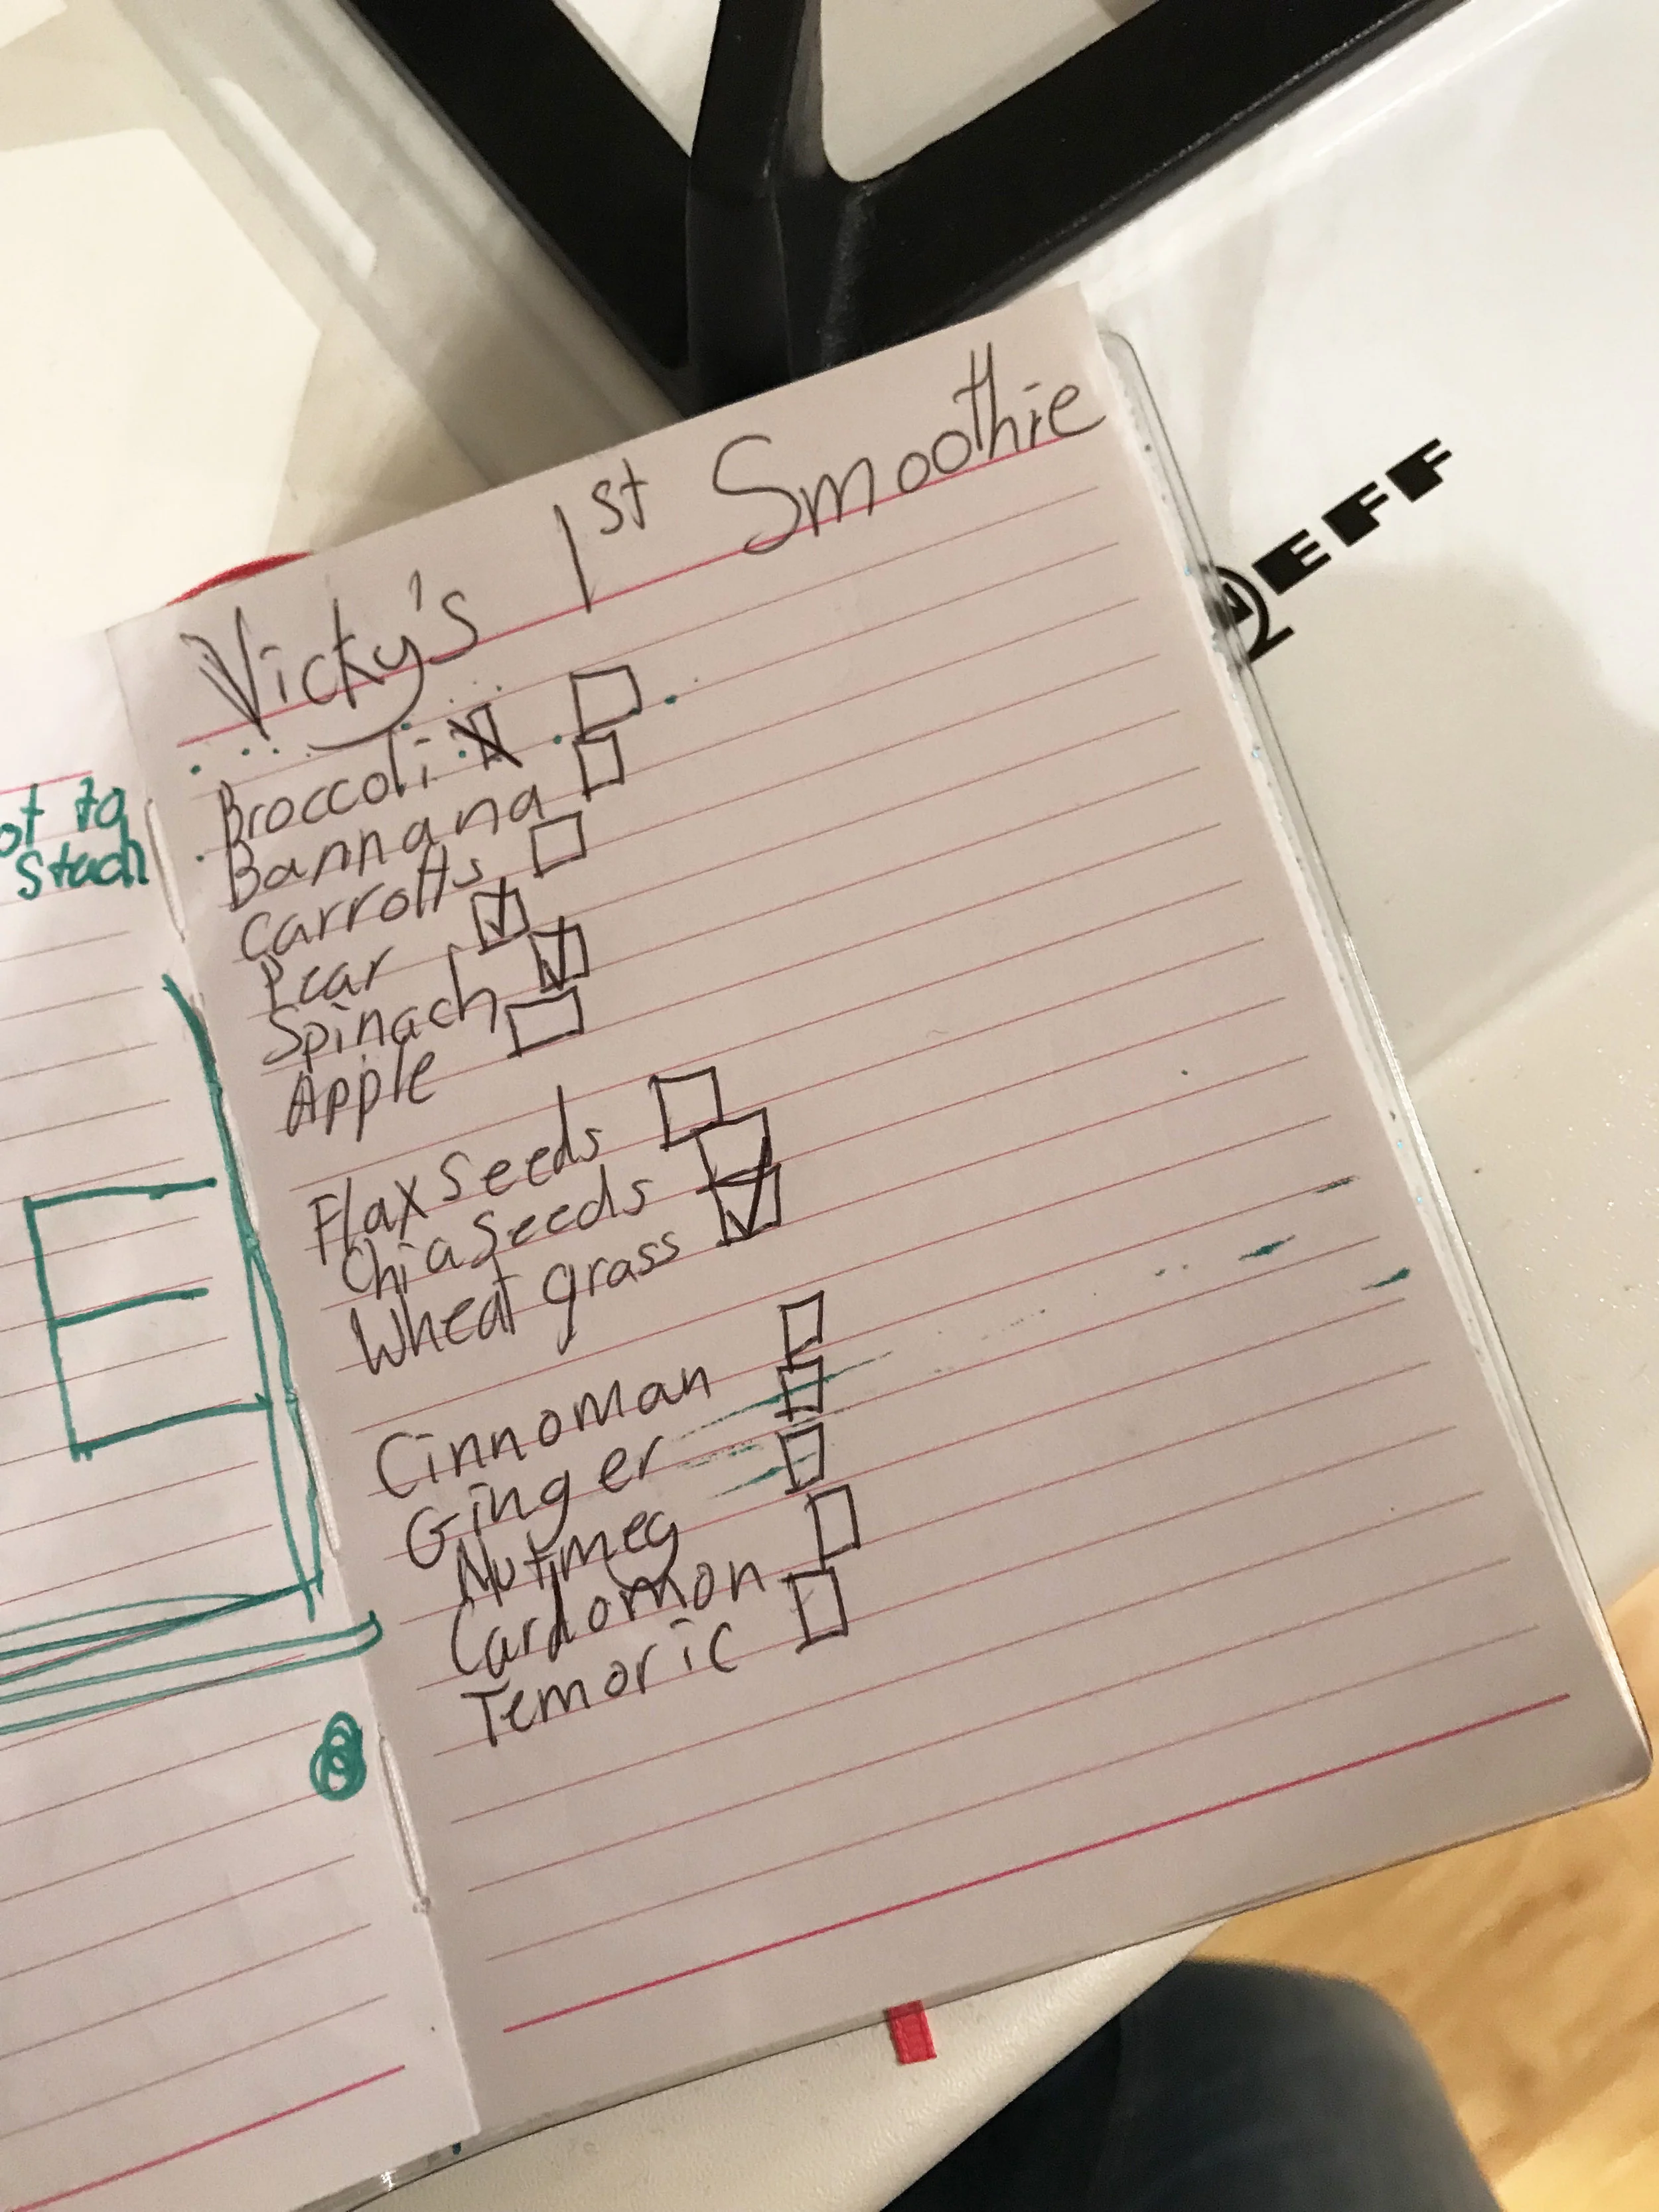 Vicky's 1st Smoothie
Broccoli
Bannana
Carrotts
Pear
Spinach
Apple
Flax seeds
Chia seeds
Wheat grass
Cinnoman
Ginger
Nutmeg
Cardomon
Temoric
ot to
NEFF